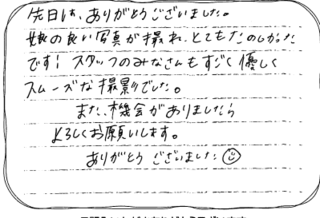 先日は、ありがとうございました。
娘の良い写真が撮れ、とてもたのしかった
です！スタッフのみなさんもすごく優しく
スムーズな撮影でした。
また、機会がありましたら
よろしくお願いします。
ありがとうございました